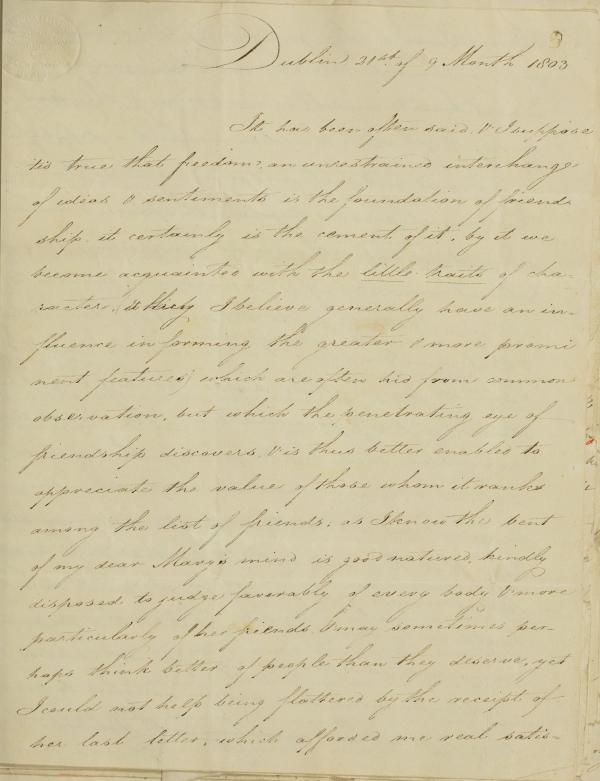 Dublin 21st of 9 Month 1803
It has been often said, & I suppose
tis true that freedom, an unrestrained interchange
of ideas & sentiments is the foundation of friend
ship. it certainly is the cement of it, by it we
become acquainted with the little traits of cha-
racter, (& they I believe generally have an in-
fluence in forming the greater & more promi
nent features) which are often hid from common
observation, but which the penetrating eye of
friendship discovers, & is thus better enabled to
appreciate the value of those whom it ranks
among the list of friends; as I know the bent
of my dear Mary's mind is good natured, kindly
disposed to judge favorably of every body & more
particularly of her friends, & may sometimes per-
haps think better of people than they deserve, yet
I could not help being flattered by the receipt of
her last letter, which afforded me real satis-